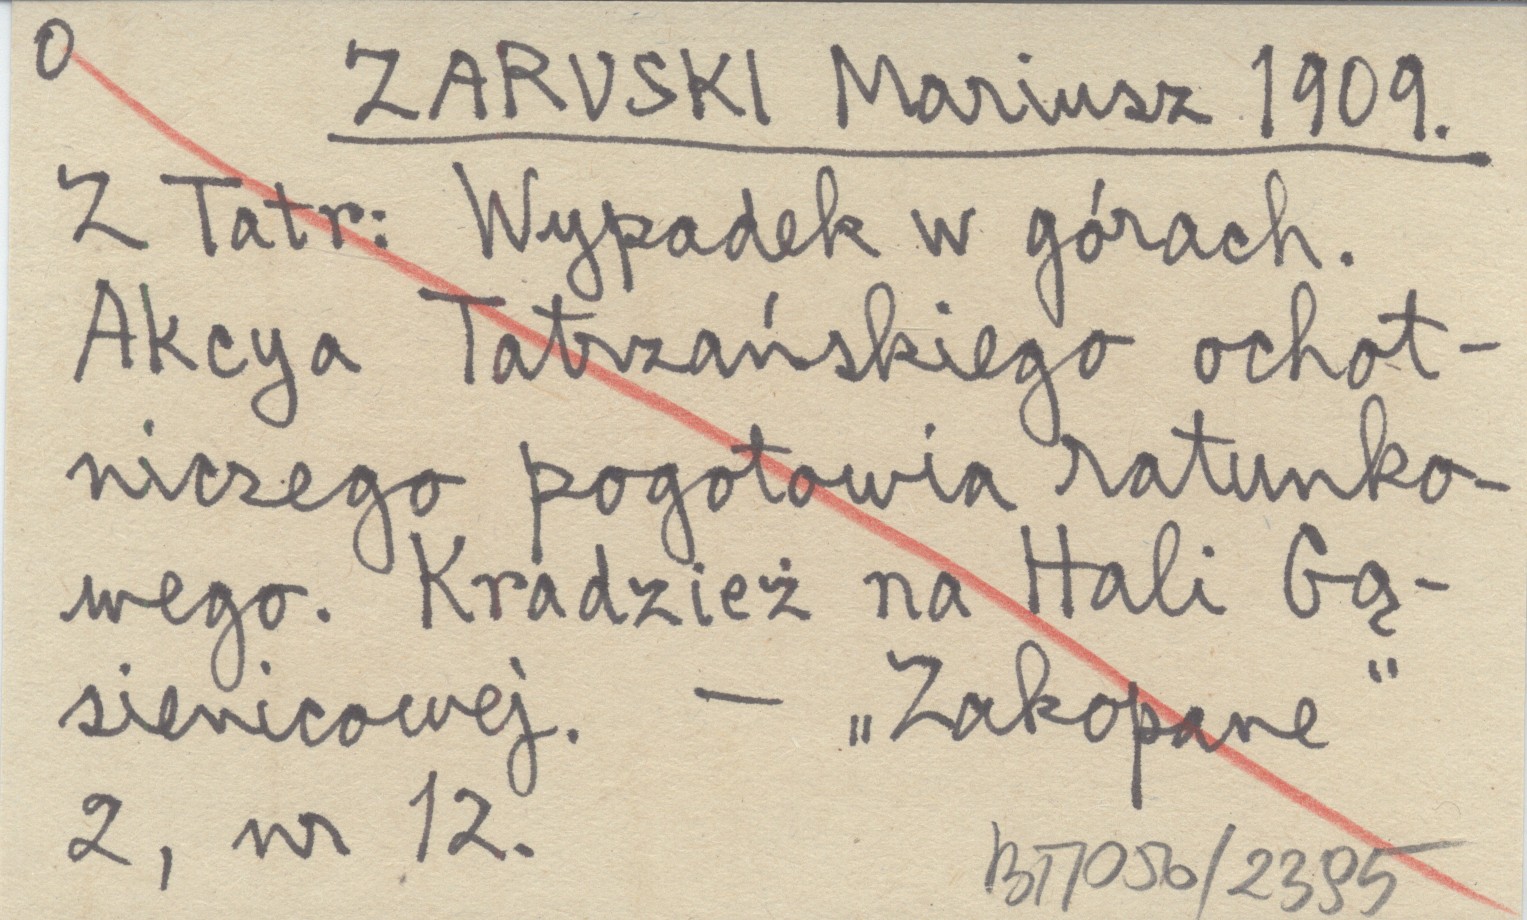 O
ZARUSKI Mariusz 1909.
Z Tatr: Wypadek w górach.
Akcya Tatrzańskiego ochot-
niczego pogotowia ratunko-
wego. Kradzież na Hali Gą-
sienicowej. — „Zakopane"
2, nr 12.
/2395